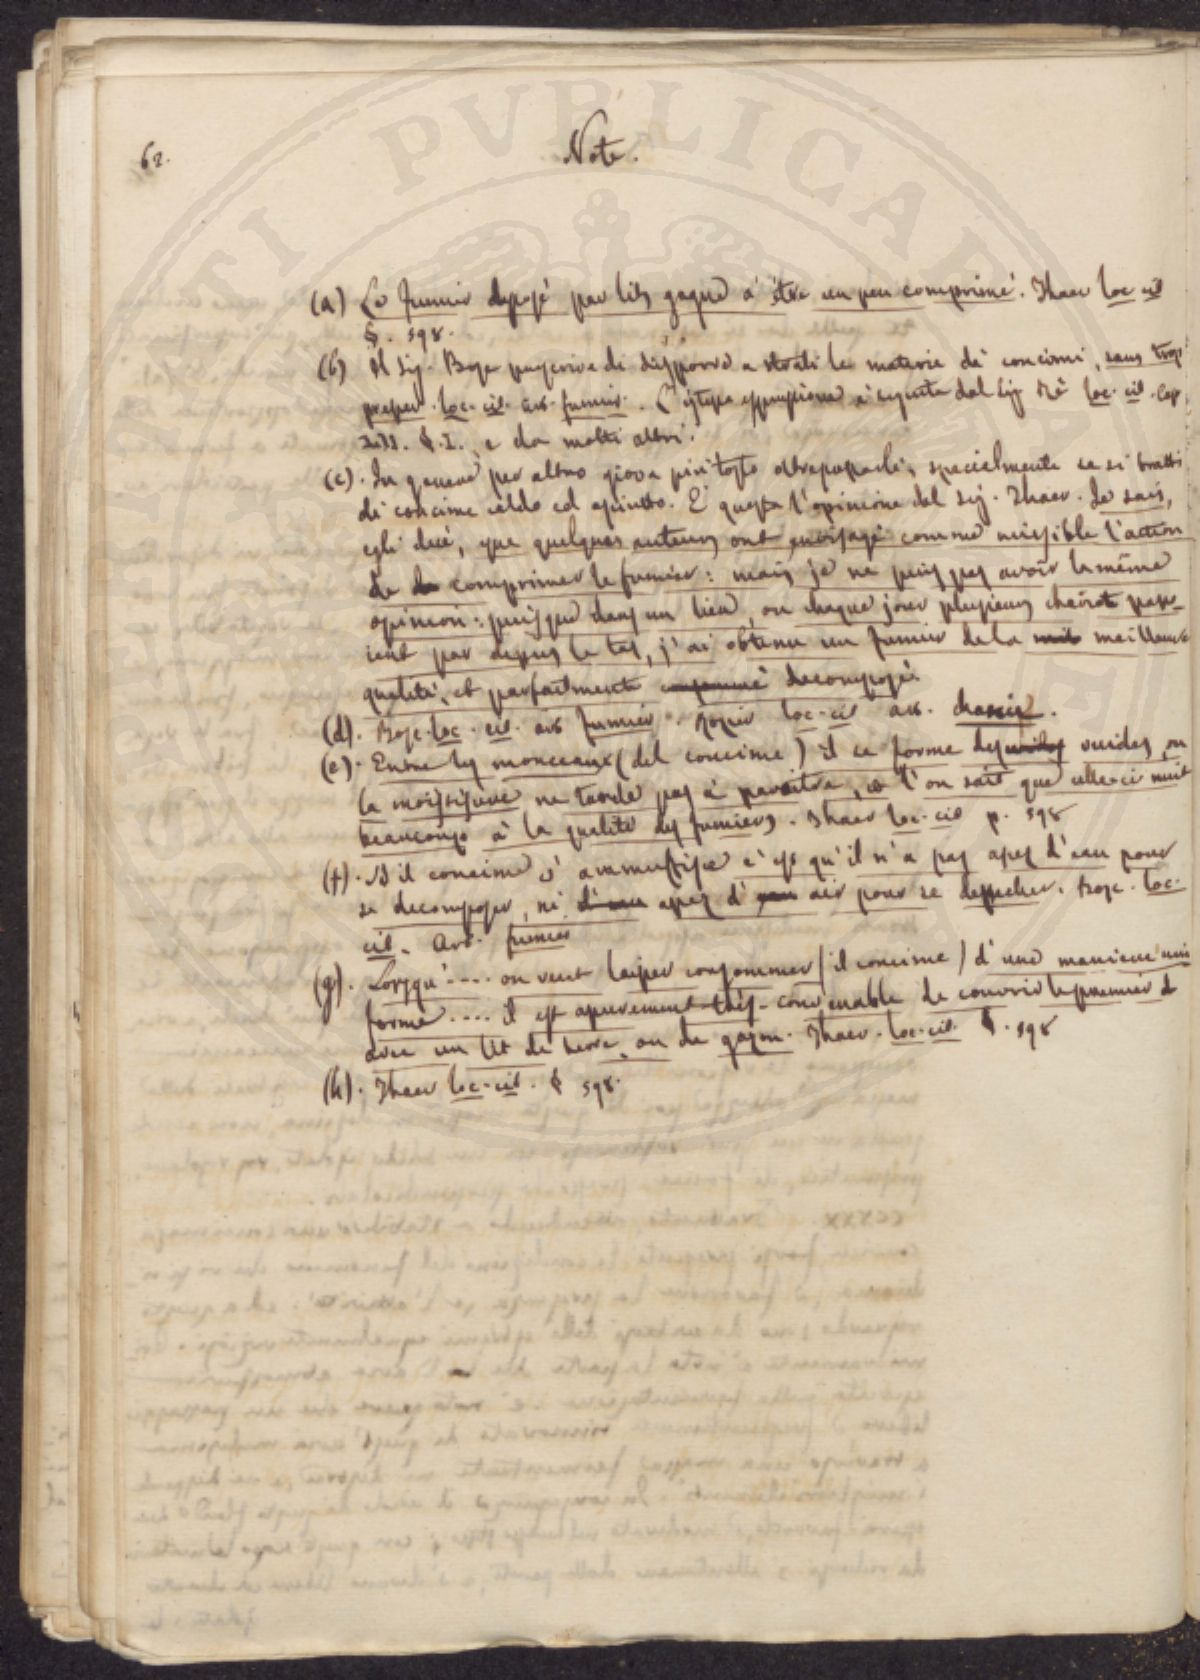 62.
Note.
(a) Le fumier deposé par lits gagne a être un peu comprimé. Thaer loc cit
§. 598.
(b) Il Sig. Bosc suggerisce di disporre a strati le materie da concimi, sans trop
presser. loc. cit. art. fumier. L'istessa espressione è seguita dal Sig Rè loc. cit. Cap
§. I. e da molti altri.
(c). In genere per altro giova piu tosto oltrepassarli, specialmente se si tratti
di concime caldo ed asciutto. E questa l'opinione del Sig. Thaer. Je sais,
egli dice, que quelques auteurs ont envisagé comme nuisible l'action
de la comprimer le fumier: mais je ne puis pas avoir la même
opinion: puisque dans un lieu, ou chaque jour plusieurs chariot pass-
ient par dessus le tas, j'ai obtenu un fumier de la meilleure
qualité, et parfaitment consommé decomposé.
(d). Bosc. loc. cit. art fumier. Rozier loc. cit art.
(e). Entre les monceaux (del concime) il se forme des vuides vuides, ou
la moisissure ne tarde pas à paraitre, et l'on sait que celle-ci nuit
beaucoup à la qualité des fumiers. Thaer loc. cit p. 598
(f). Si il concime s' ammuffisce c'est qu'il n'a pas assez d'eau pour
se decomposer, ni d'eau assez d' air pour se dessecher. Bosc. loc.
cit. Art. fumier
(g). Lorsqu'.... on veut laisser consommer (il concime) d'une maniere uni
forme.... il est assurement très-convenable de couvrir le premier
avec un lit de terre, ou de gazon. Thaer. loc. cit. §. 598
(h). Thaer loc. cit. § 598.
PUBLICAE